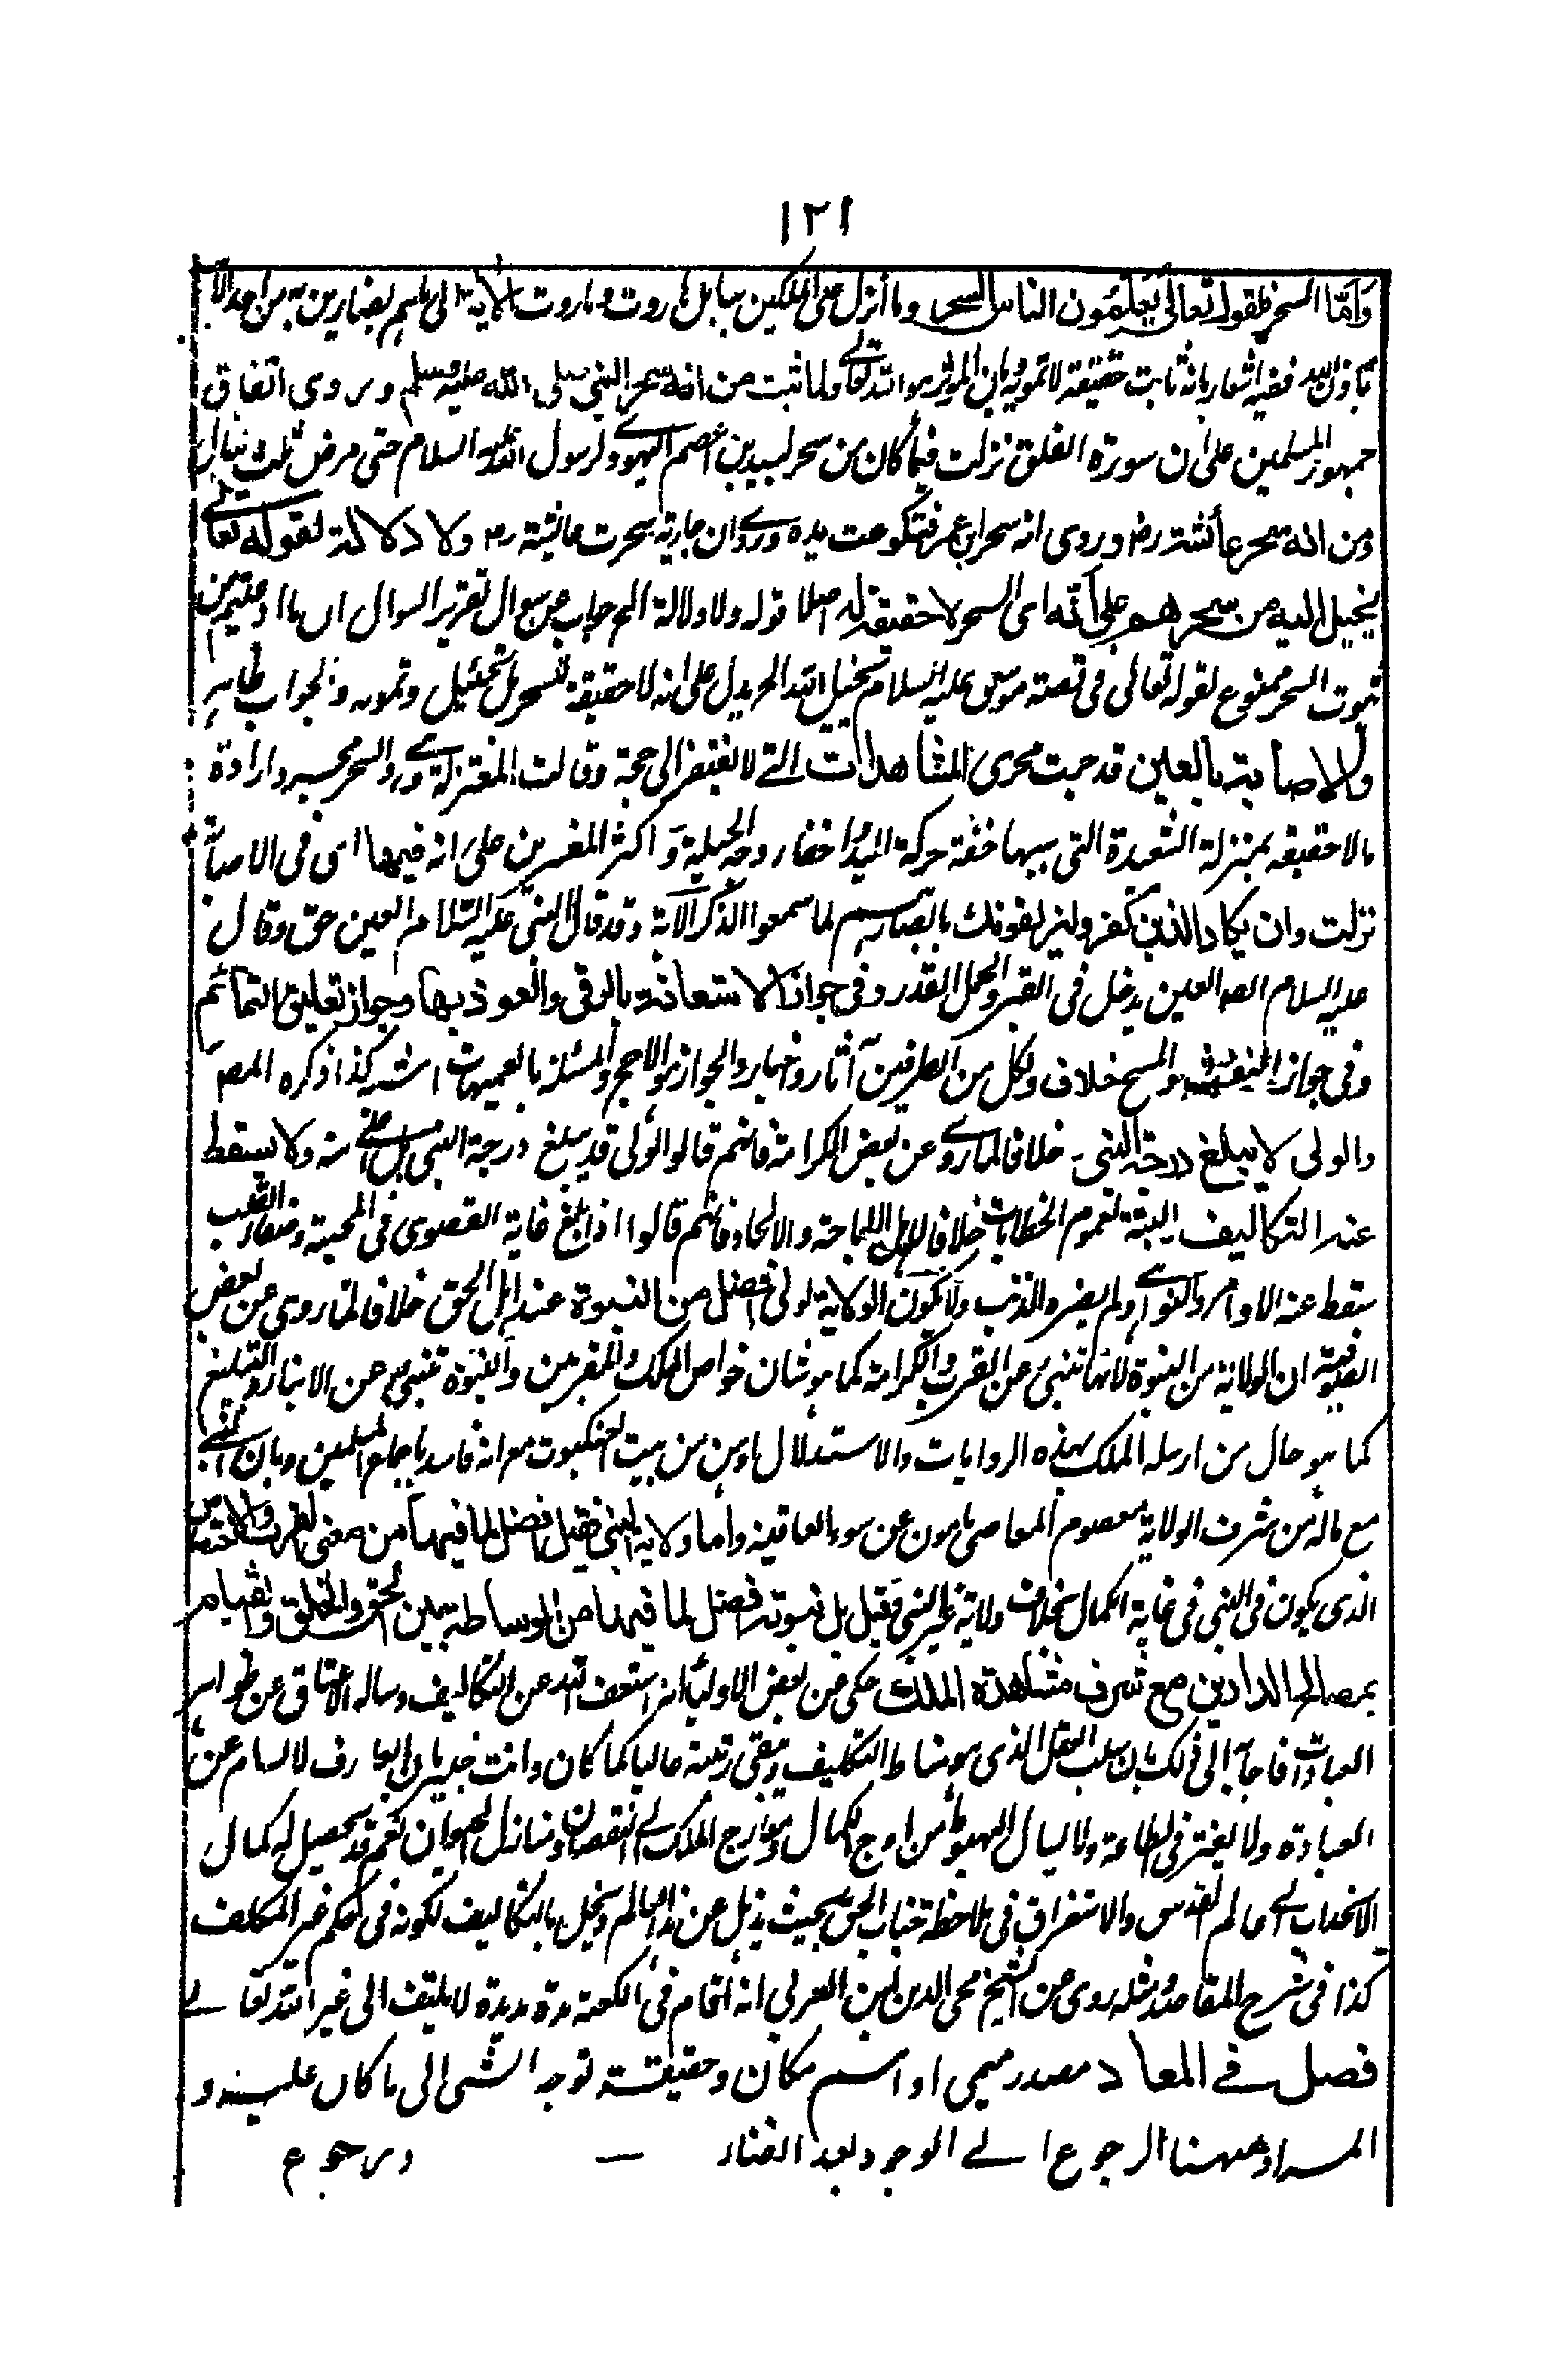 ١٢١
وأما السحر فلقوله تعالى يعلمون الناس السحر وما أنزل على الملكين ببابل هاروت وماروت الآية الى وما هم بضارين به من احد الا
باذن الله ففيه اشعار بانه ثابت حقيقة لا تمويه بان المؤثر هو الله تعالى ولما ثبت من انه سحر النبي صلى الله عليه وسلم وروى اتفاق
جمهور المسلمين على ان سورة الفلق نزلت فيما كان من سحر لبيد بن اعصم اليهودي لرسول الله عليه السلام حتى مرض ثلث ليال
ومن انه سحر عائشة رض وروى انه سحر ابن عمر فتكوعت يده وروى ان جارية سحرت عائشة رض ولا دلالة لقوله تعالى
يخيل اليه من سحرهم على أنه اى السحر لا حقيقة له اصلا قوله ولا دلالة الخ جواب عن سوال تقرير السوال ان ما ادعيتم من
ثبوت السحر ممنوع لقوله تعالى في قصة موسى عليه السلام يخيل اليه الخ يدل على انه لا حقيقة للسحر بل تخئيل وتمويه والجواب ظاهر
والاصابة بالعين قد جرت مجرى المشاهدات التي لا تفتقر الى حجة وقالت المعتزلة السحر مجرد اراءة
ما لا حقيقة بمنزلة الشعبدة التي سببها خفة حركة اليد او اخفاء وجه الحيلة و اكثر المفسرين على انه فيها اى في الاصابة
نزلت وان يكاد الذين كفروا ليزلقونك بابصارهم لما سمعوا الذكر الآية وقد قال النبي عليه السلام العين حق وقال
عليه السلام العين يدخل في القبر والجمل القدر وفي جواز الاستعانة بالرقى والعوذ بها وجواز تعليق التمائم
وفي جواز النفث والمسح خلاف ولكل من الطرفين آثار واخبار والجواز هو الارجح والمسئلة بالفقهيات اشبه كذا ذكره المص
والولي لا يبلغ درجة النبي خلافا لما روى عن بعض الكرامية فانهم قالوا الولى قد يبلغ درجة النبي بل اعلى منه ولا يسقط
عنه التكاليف البتة لعموم الخطابات خلافا لاهل الاباحة والالحاد فانهم قالوا اذا بلغ غاية القصوى في المحبة وصفاء القلب
سقط عنه الاوامر والنواهي ولم يضره الذنب ولا تكون الولاية لولي افضل من النبوة عند اهل الحق خلافا لما روى عن بعض
الصوفية ان الولاية من النبوة لانها تنبئ عن القرب والكرامة كما هو شان خواص الملك والمقربين والنبوة تنبئ عن الانباء والتبليغ
كما هو حال من ارسله الملك بهذه الروايات والاستدلال اوهن من بيت العنكبوت مع انه فاسد باجماع المسلمين وبان النبي
مع ماله من شرف الولاية معصوم المعاصي مامون عن سوء العاقبة واما ولاية النبي فقيل افضل لما فيها من معنى القرب والاختصاص
الذى يكون في النبي في غاية الكمال بخلاف ولاية غير النبي وقيل بل نبوته افضل لما فيها من الوساطة بين الحق والخلق والقيام
بمصالح الدارين مع شرف مشاهدة الملك حكى عن بعض الاولياء انه استعف الله عن التكاليف وساله الاعتاق عن ظواهر
العبادات فاجابه الى ذلك بان سلب العقل الذى هو مناط التكليف وبقى رتبته عاليا كما كان وانت خبير بان العارف لا يسام عن
العبادة ولا يفتر في الطاعة ولا يسال الهبوط من اوج الكمال ومعارج الملك الى النقصان ومنازل الحيوان نعم قد يحصل له كمال
الانجذاب الى عالم القدس والاستغراق في ملاحظة جناب الحق بحيث يذهل عن هذا العالم ويخل بالتكاليف لكونه في حكم غير المكلف
كذا في شرح المقاصد ومثله روى عن الشيخ محي الدين ابن العربي انه اقام في الكعبة مدة مديدة لا يلتفت الى غير الله تعالى
فصل في المعاد مصدر ميمي او اسم مكان وحقيقته توجه الشي الى ما كان عليه و
المراد ههنا الرجوع الى الوجود بعد الفناء ورجوع